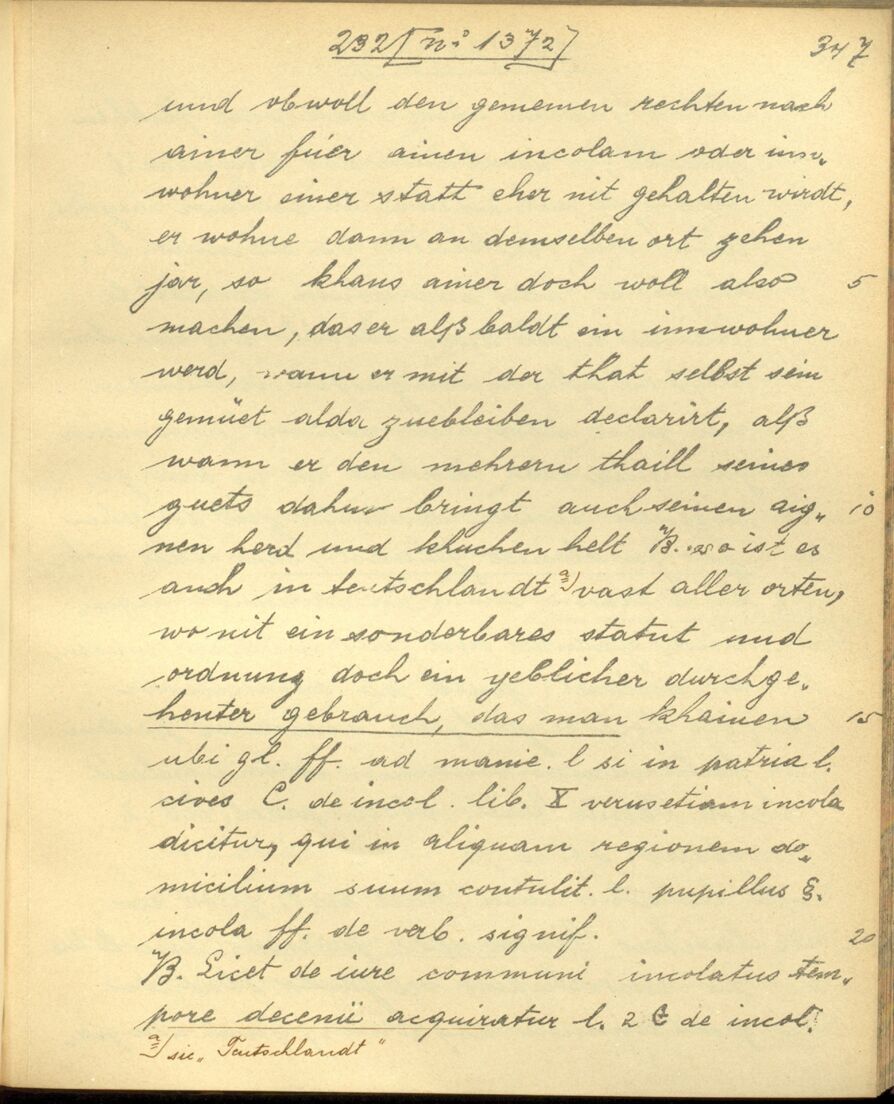 232 [nº 1372] 347
und obwoll den gemeinen rechten nach
ainer füer ainen incolam oder inn„
wohner einer statt eher nit gehalten wirdt,
er wohne dann an demselben ort zehen
jar, so khans ainer doch woll also 5
machen, das er alß baldt ein innwohner
werd, wann er mit der that selbst sein
gemüet alda zuebleiben declarirt, alß
wann er den mehrern thaill seines
guets dahin bringt auch seinen aig„ 10
nen herd und khuchen helt NB. so ist es
auch in teutschlandt a) vast aller orten,
wo nit ein sonderbares statut und
ordnung doch ein yeblicher durchge„
henter gebrauch, das man khainen 15
ubi gl. ff. ad munic. l si in patria l.
cives C. de incol. lib. X verus etiam incola
dicitur, qui in aliquam regionem do„
micilium suum contulit. l. pupillus §.
incola ff. de verb. signif. 20
NB. Licet de iure communi incolatus tem„
pore decenii acquiratur l. 2 C de incol.
a) sic „Teutschlandt"